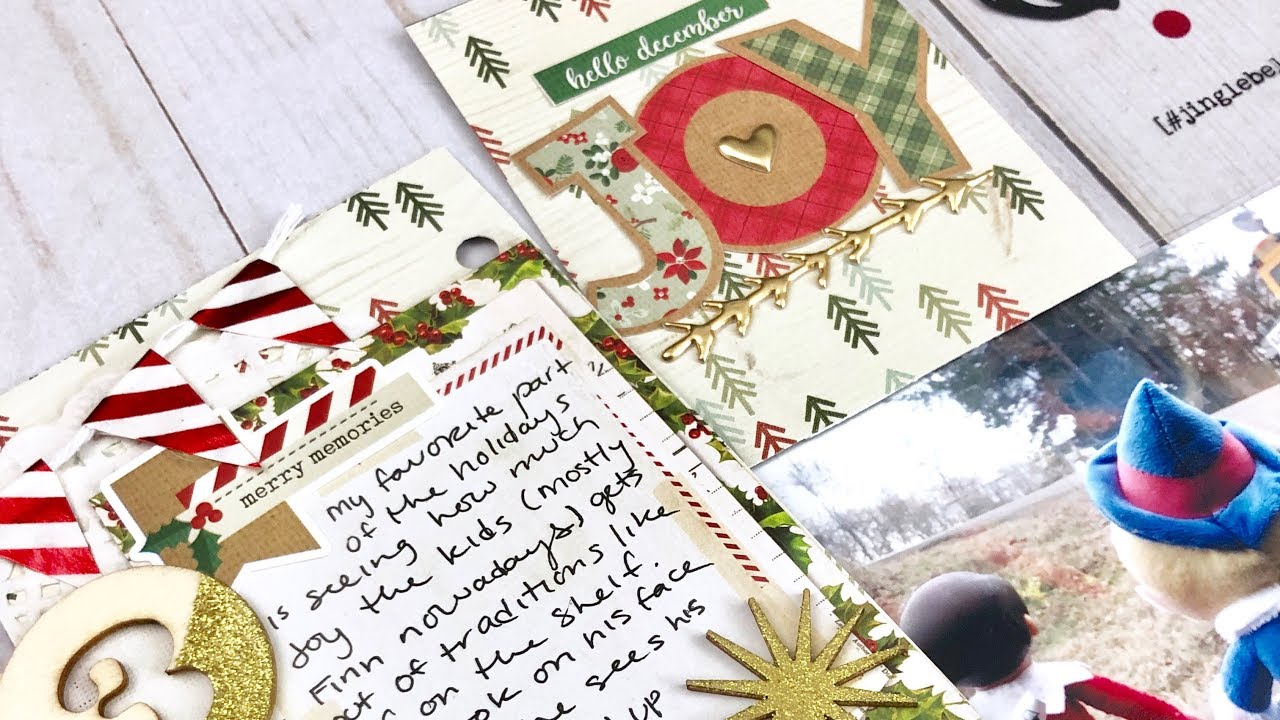 hello december
JOY
[#jinglebel
merry memories
my favorite part
of the holidays
is seeing how much
joy the kids (mostly
Finn nowadays) gets
out of traditions like
on the shelf.
ook on his face
sees his
up
3